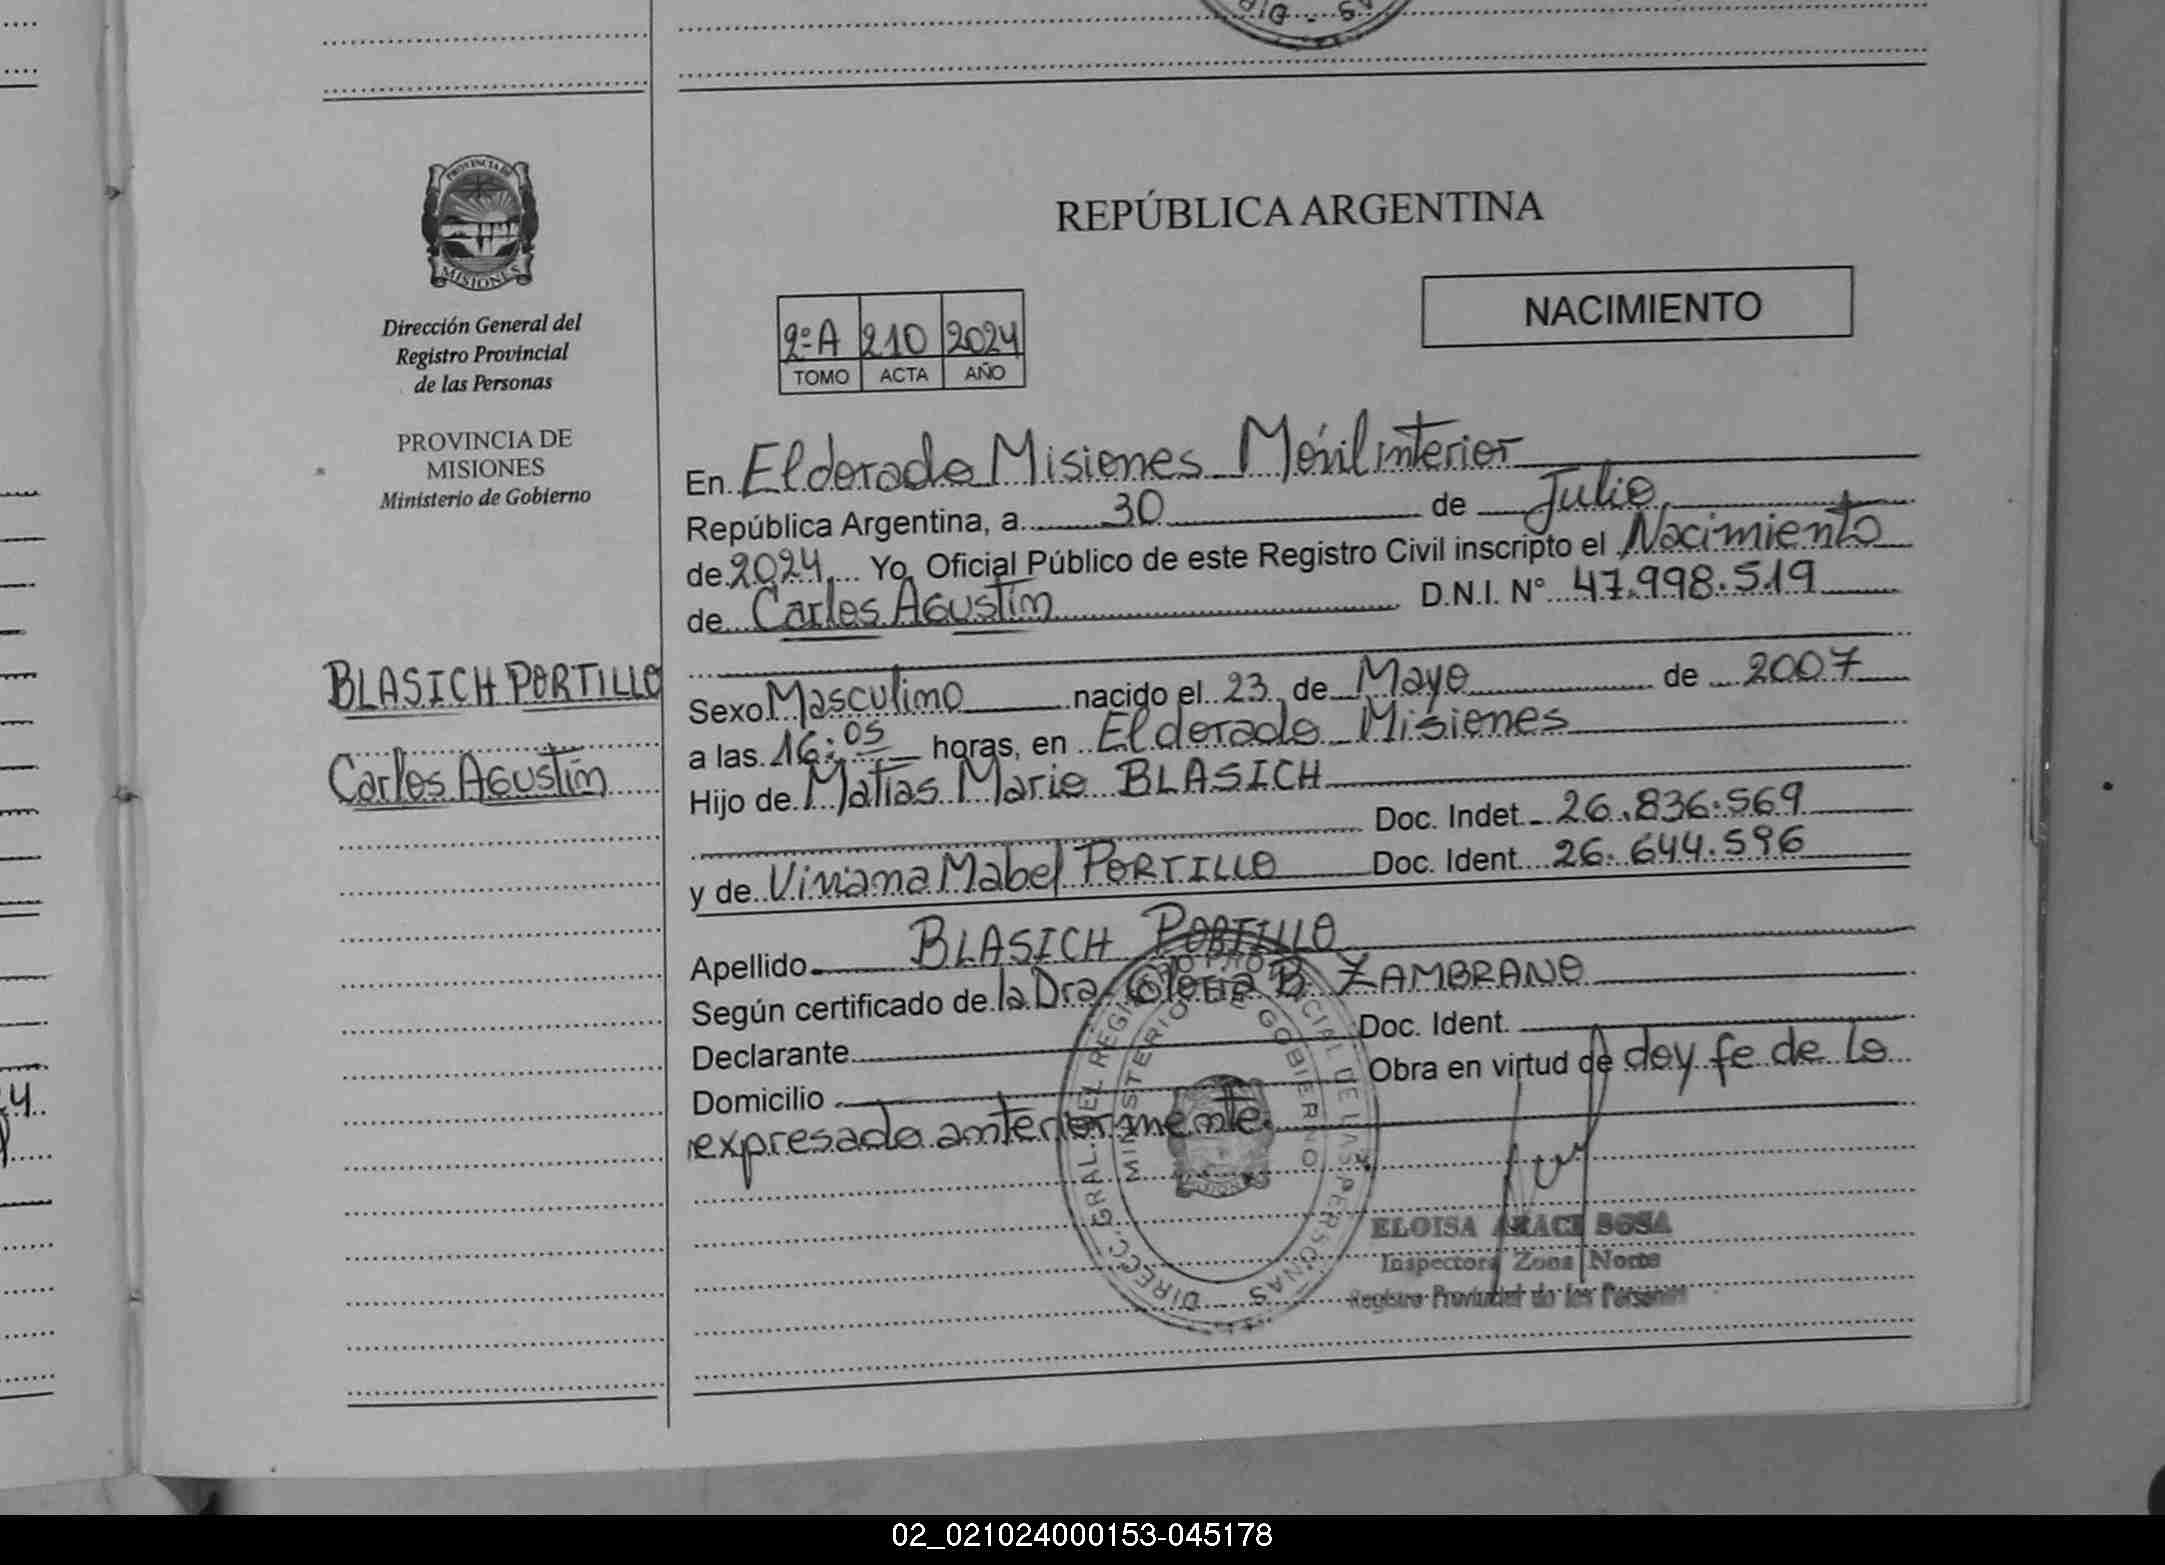 PROVINCIA DE
MISIONES
Dirección General del
Registro Provincial
de las Personas
PROVINCIA DE
MISIONES
Ministerio de Gobierno
BLASICH PORTILLO
Carlos Agustín
REPÚBLICA ARGENTINA
NACIMIENTO
2º A 210 2024
TOMO ACTA AÑO
En Eldorado Misiones Móvil interior
República Argentina, a 30 de Julio
de 2024 Yo, Oficial Público de este Registro Civil inscripto el Nacimiento
de Carlos Agustín D.N.I. Nº 47.998.519
Sexo Masculino nacido el 23 de Mayo de 2007
a las 16:05 horas, en Eldorado Misiones
Hijo de Matías Mario BLASICH
Doc. Indet. 26.836.569
y de Viviana Mabel PORTILLO Doc. Ident. 26.644.596
Apellido BLASICH PORTILLO
Según certificado de la Dra. Gloria B. ZAMBRANO
Doc. Ident.
Declarante
Obra en virtud de doy fe de lo
Domicilio
expresado anteriormente.
DIRECC. GRAL. DEL REGISTRO PROVINCIAL DE LAS PERSONAS
MINISTERIO DE GOBIERNO
ELOISA ARACI SOSA
Inspectora Zona Norte
Registro Provincial de las Personas
02_021024000153-045178